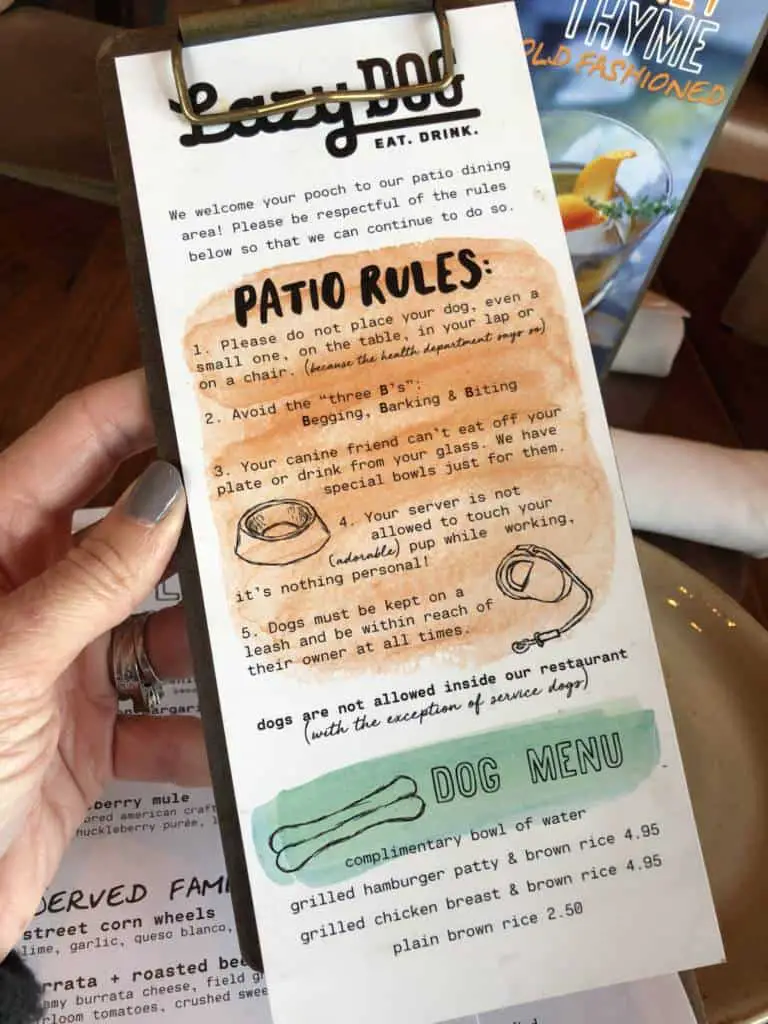 Lazy DOG
EAT. DRINK.
We welcome your pooch to our patio dining
area! Please be respectful of the rules
below so that we can continue to do so.
PATIO RULES:
1. Please do not place your dog, even a
small one, on the table, in your lap or
on a chair. (because the health department says so)
2. Avoid the "three B's":
Begging, Barking & Biting
3. Your canine friend can't eat off your
plate or drink from your glass. We have
special bowls just for them.
4. Your server is not
allowed to touch your
(adorable) pup while working,
it's nothing personal!
5. Dogs must be kept on a
leash and be within reach of
their owner at all times.
dogs are not allowed inside our restaurant
(with the exception of service dogs)
DOG MENU
complimentary bowl of water
grilled hamburger patty & brown rice 4.95
grilled chicken breast & brown rice 4.95
plain brown rice 2.50
THYME
OLD FASHIONED
berry mule
american craft
huckleberry purée,
street corn wheels
lime, garlic, queso blanco,
burrata cheese, field
tomatoes, crushed